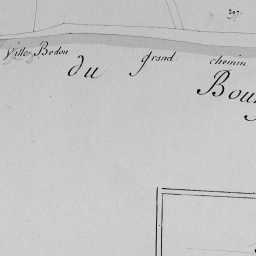 207.
Ville Bedou
du grand chemin
Bou